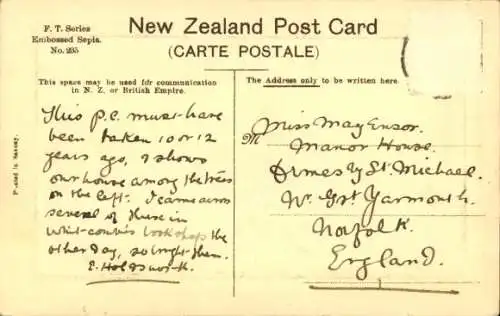 F. T. Series
Embossed Sepia.
No. 295
New Zealand Post Card
(CARTE POSTALE)
This space may be used for communication
in N. Z. or British Empire.
The Address only to be written here.
This p.c. must have
been taken 10 or 12
years ago, & shows
our house among the trees
on the left. I came across
several of these in
Whitcombe's bookshop the
other day, so bought them.
E. Holdsworth.
M
Miss May Ensor.
Manor House.
Ormesby St. Michael.
Nr. Grt Yarmouth.
Norfolk.
England.
Printed in Saxony.